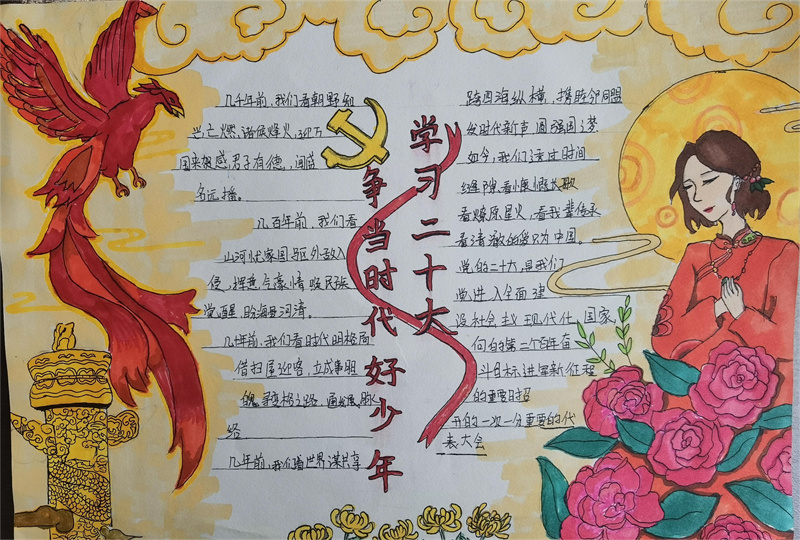 学习二十大
争当时代好少年
几千年前,我们看朝野知
兴亡,燃诸侯烽火,迎万
国来朝,感君子有德,闻
名远播。
几百年前,我们看
山河忧家国驱外敌入
侵,挥意气豪情唤民族
觉醒,盼海晏河清。
几十年前,我们看时代明格局
借扫屋迎客,立成事胆
魄,寻变格之路,通发展脉
络
几年前,我们看世界谋共享
跨四海纵横,携睦邻同盟
发时代新声,圆强国梦
如今,我们透过时间
缝隙,看慷慨长歌
看燎原星火,看我辈传承
看清澈的爱只为中国。
党的二十大,是我们
党进入全面建
设社会主义现代化国家,
向的第二个百年奋
斗目标进军新征程
的重要时
开的一次十分重要的代
表大会